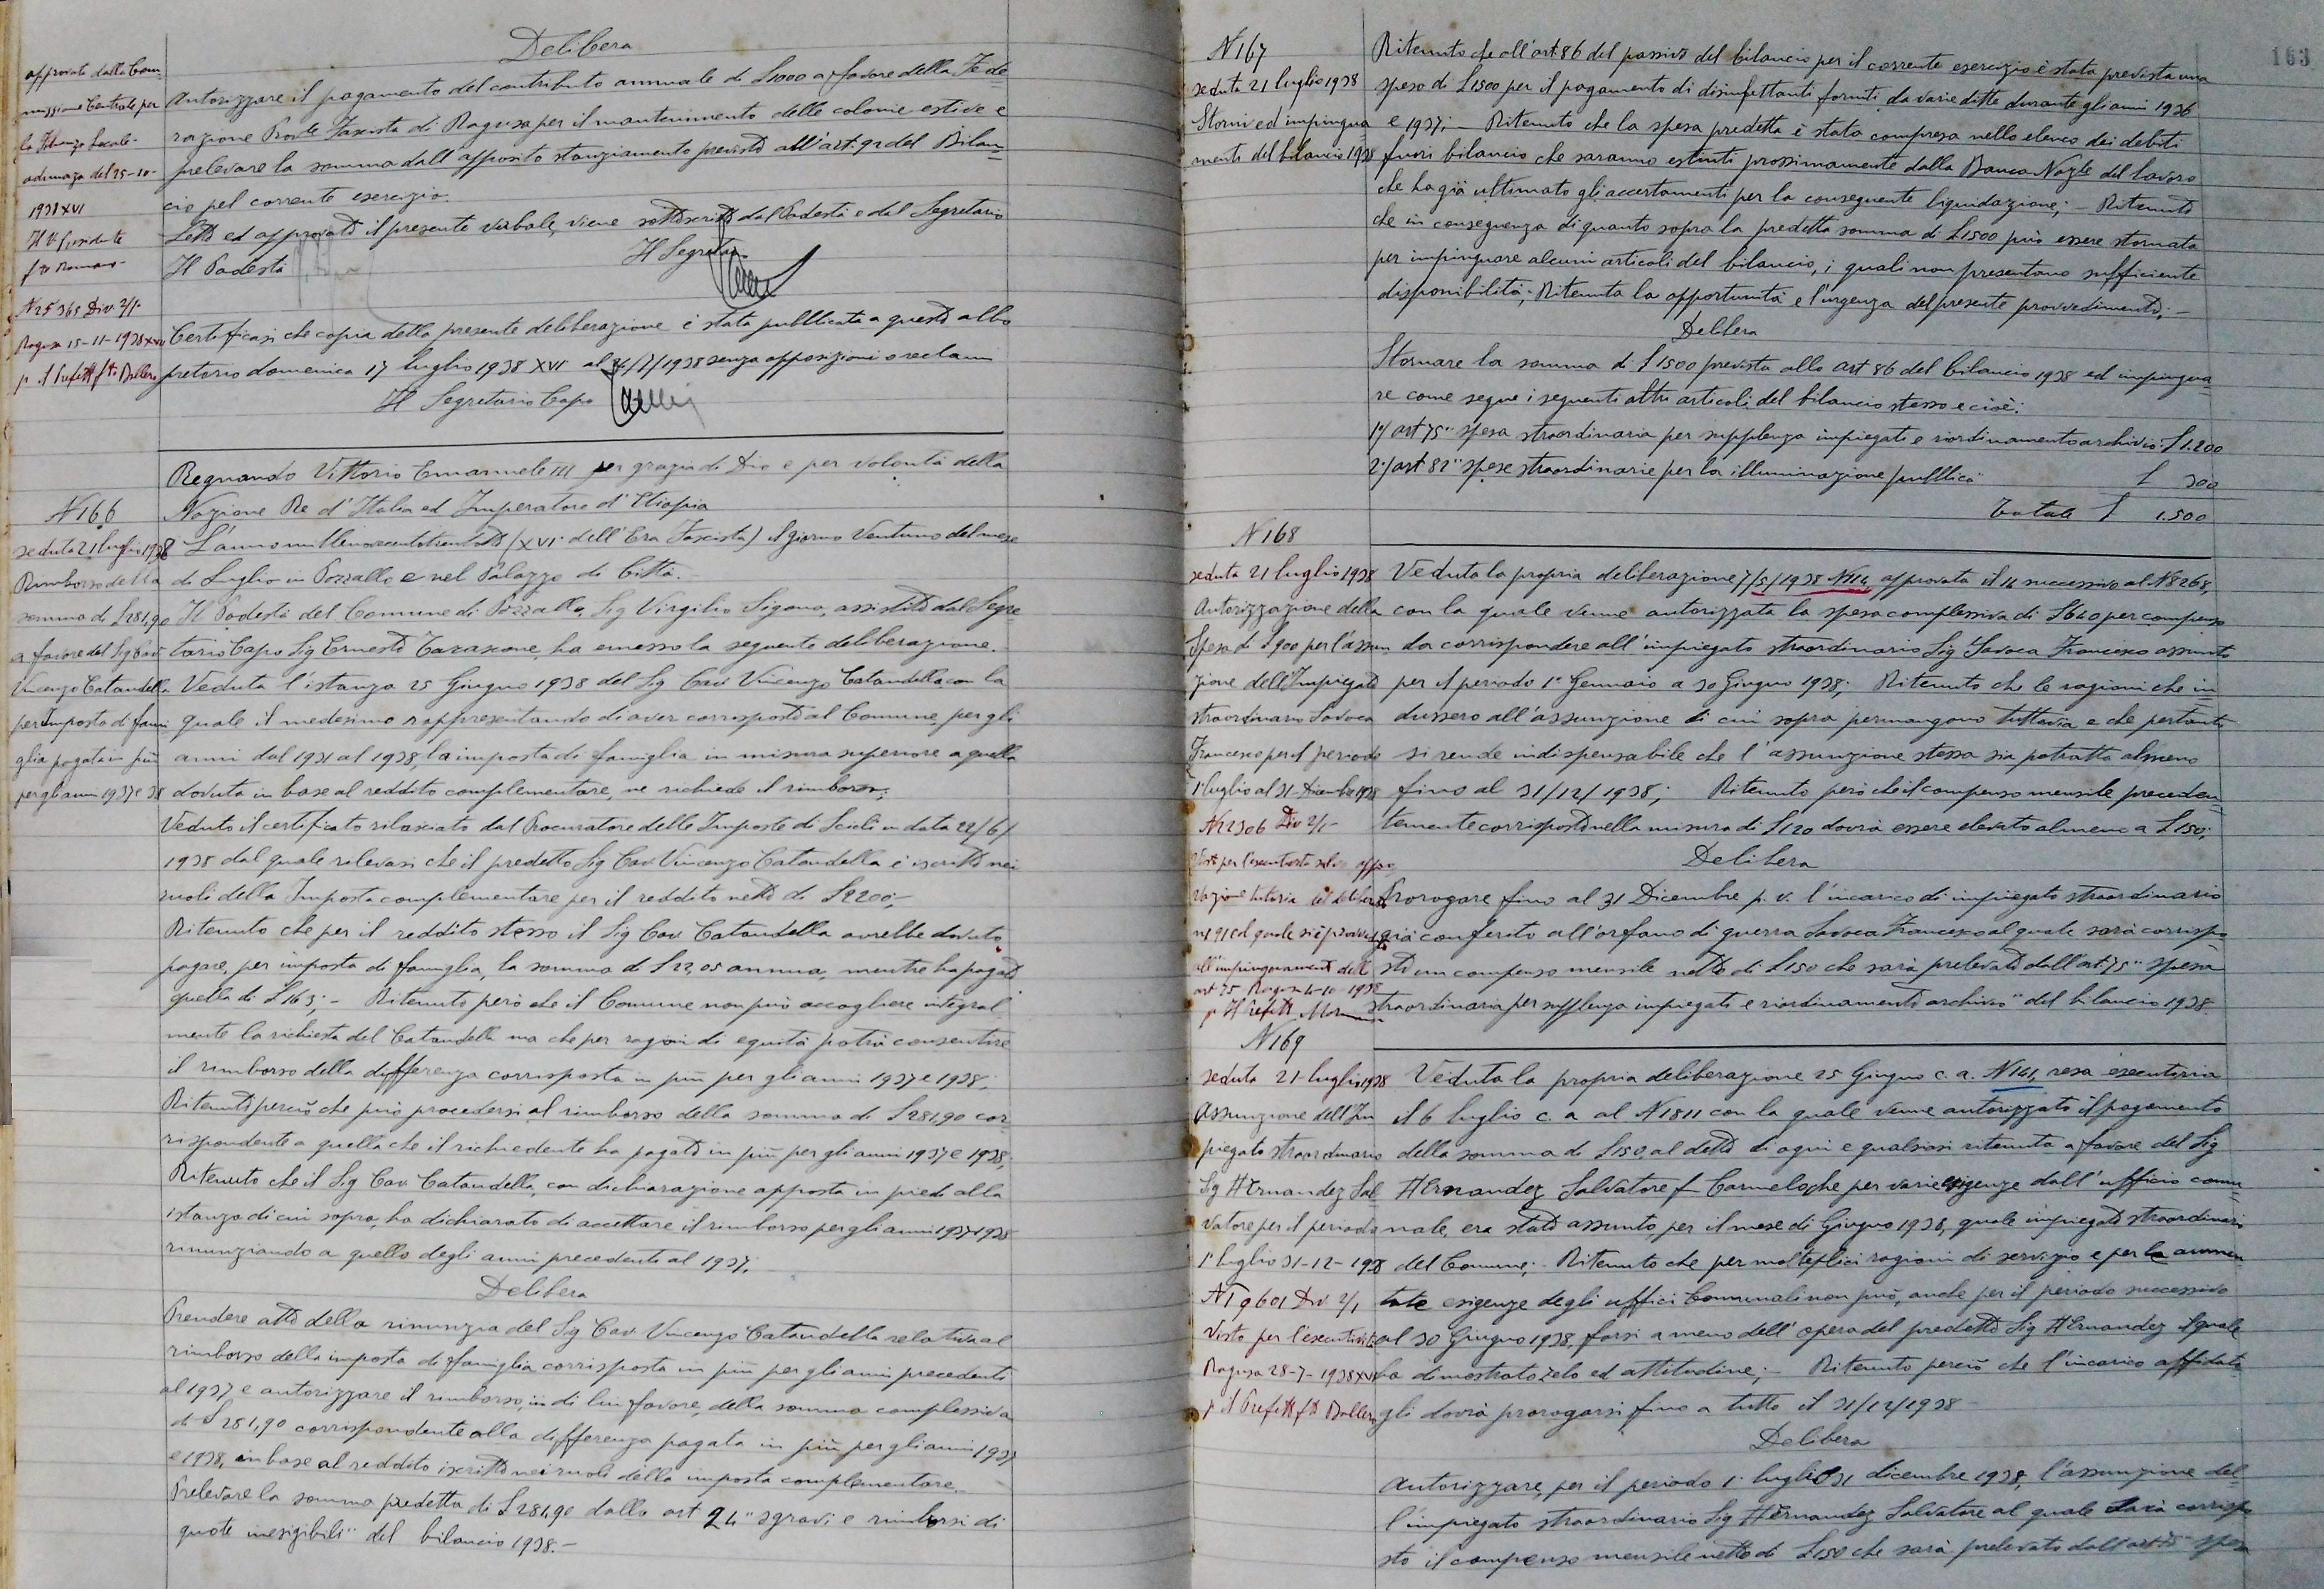 Delibera
approvato dalla Com-
missione Centrale per
la Finanza Locale-
adunanza del 25-10-
1938 XVI
Il V. Presidente
fto Romano
N 25365 Div 2/1-
Ragusa 15-11-1938 XVII
p. Il Prefetto fto Ballero
Autorizzare il pagamento del contributo annuale di £1000 a favore della Fede
razione Prov.le Fascista di Ragusa per il mantenimento delle colonie estive e
prelevare la somma dall'apposito stanziamento previsto all'art. 91 del Bilan-
cio pel corrente esercizio.
Letto ed approvato il presente verbale, viene sottoscritto dal Podestà e dal Segretario
Il Podestà
Il Segretario
Certificasi che copia della presente deliberazione è stata pubblicata a questo albo
pretorio domenica 17 luglio 1938 XVI al 24/7/1938 senza opposizioni o reclami
Il Segretario Capo
N 166
seduta 21 luglio 1938
Rimborso della
somma di £281,90
a favore del Sig Cav
Vincenzo Cataudella
per Imposta di fami
glia pagata in più
per gli anni 1937 e 38
Regnando Vittorio Emanuele III per grazia di Dio e per volontà della
Nazione Re d'Italia ed Imperatore d'Etiopia
L'anno millenovecentotrentotto (XVI dell'Era Fascista) il giorno Ventuno del mese
di Luglio in Pozzallo e nel Palazzo di Città.-
Il Podestà del Comune di Pozzallo, Sig Virgilio Sigona, assistito dal Segre
tario Capo Sig Ernesto Tarascone, ha emesso la seguente deliberazione.
Veduta l'istanza 25 Giugno 1938 del Sig Cav Vincenzo Cataudella con la
quale il medesimo rappresentando di aver corrisposto al Comune, per gli
anni dal 1931 al 1938, la imposta di famiglia in misura superiore a quella
dovuta in base al reddito complementare, ne richiede il rimborso;
Veduto il certificato rilasciato dal Procuratore delle Imposte di Scicli in data 22/6/
1938 dal quale rilevasi che il predetto Sig Cav Vincenzo Cataudella è iscritto nei
ruoli della Imposta complementare per il reddito netto di £2200;-
Ritenuto che per il reddito stesso il Sig Cav Cataudella avrebbe dovuto
pagare, per imposta di famiglia, la somma di £22,05 annua, mentre ha pagato
quella di £163;- Ritenuto però che il Comune non può accogliere integral
mente la richiesta del Cataudella ma che per ragioni di equità potrà consentire
il rimborso della differenza corrisposta in più per gli anni 1937 e 1938;
Ritenuto perciò che può procedersi al rimborso della somma di £281,90 cor
rispondente a quella che il richiedente ha pagato in più per gli anni 1937 e 1938;
Ritenuto che il Sig Cav Cataudella, con dichiarazione apposta in piedi alla
istanza di cui sopra, ha dichiarato di accettare il rimborso per gli anni 1937-1938
rinunziando a quello degli anni precedenti al 1937;
Delibera
Prendere atto della rinunzia del Sig Cav Vincenzo Cataudella relativa al
rimborso della imposta di famiglia corrisposta in più per gli anni precedenti
al 1937 e autorizzare il rimborso, in di lui favore, della somma complessiva
di £281,90 corrispondente alla differenza pagata in più per gli anni 1937
e 1938, in base al reddito iscritto nei ruoli della imposta complementare.
Prelevare la somma predetta di £281,90 dallo art 24 "sgravi e rimborsi di
quote inesigibili" del bilancio 1938.-
163
N 167
seduta 21 luglio 1938
Storni ed impingua
menti del bilancio 1938
Ritenuto che all'art. 86 del passivo del bilancio per il corrente esercizio è stata prevista una
spesa di £1500 per il pagamento di disinfettanti forniti da varie ditte durante gli anni 1936
e 1937;- Ritenuto che la spesa predetta è stata compresa nello elenco dei debiti
fuori bilancio che saranno estinti prossimamente dalla Banca Naz.le del Lavoro
che ha già ultimato gli accertamenti per la conseguente liquidazione;- Ritenuto
che in conseguenza di quanto sopra la predetta somma di £1500 può essere stornata
per impinguare alcuni articoli del bilancio, i quali non presentano sufficiente
disponibilità;- Ritenuta la opportunità e l'urgenza del presente provvedimento;-
Delibera
Stornare la somma di £1500 prevista allo art 86 del bilancio 1938 ed impingua
re come segue i seguenti altri articoli del bilancio stesso e cioè:
1°/ art 75 "spesa straordinaria per supplenza impiegati e riordinamento archivio" £1.200
2°/ art 82 "spese straordinarie per la illuminazione pubblica" £ 300
Totale £ 1.500
N 168
seduta 21 luglio 1938
Autorizzazione della
Spesa di £900 per l'assun
zione dell'Impiegato
straordinario Savoca
Francesco per il periodo
1° luglio al 31-Dicembre 1938
N 22306 Div 2/1-
Visto per l'esecutorietà salvo appro
vazione tutoria del delibera
n 191 col quale si è provveduto
all'impinguamento dell'
art 75 Ragusa 4-10-1938
p Il Prefetto
Veduta la propria deliberazione 7/5/1938 N114, approvata il 14 successivo al N8268,
con la quale venne autorizzata la spesa complessiva di £640 per compenso
da corrispondere all'impiegato straordinario Sig Savoca Francesco assunto
per il periodo 1° Gennaio a 30 Giugno 1938; Ritenuto che le ragioni che in
dussero all'assunzione di cui sopra permangono tuttavia e che pertanto
si rende indispensabile che l'assunzione stessa sia potratta almeno
fino al 31/12/1938; Ritenuto però che il compenso mensile preceden
temente corrisposto nella misura di £120 dovrà essere elevato almeno a £150;
Delibera
Prorogare fino al 31 Dicembre p. v. l'incarico di impiegato straordinario
già conferito all'orfano di guerra Savoca Francesco al quale sarà corrispo
sto un compenso mensile netto di £150 che sarà prelevato dall'art 75 "spesa
straordinaria per supplenza impiegati e riordinamento archivio" del bilancio 1938.
N 169
seduta 21 luglio 1938
Assunzione dell'Im
piegato straordinario
Sig Hernandez Sal
vatore per il periodo
1° luglio 31-12-1938
N 19601 Div 2/1
Visto per l'esecutività
Ragusa 28-7-1938 XVI
p il Prefetto fto Ballero
Veduta la propria deliberazione 25 Giugno c. a. N141, resa esecutoria
il 6 luglio c. a al N 1811 con la quale venne autorizzato il pagamento
della somma di £150, al detto di ogni e qualsiasi ritenuta a favore del Sig
Hernandez Salvatore fu Carmelo, che per varie esigenze dall'ufficio comu
nale, era stato assunto, per il mese di Giugno 1938, quale impiegato straordinario
del Comune;- Ritenuto che per molteplici ragioni di servizio e per le aumen
tate esigenze degli uffici Comunali non può, anche per il periodo successivo
al 30 Giugno 1938, farsi a meno dell'opera del predetto Sig Hernandez il quale
ha dimostrato zelo ed attitudine;- Ritenuto perciò che l'incarico affidato
gli dovrà prorogarsi fino a tutto il 31/12/1938
Delibera
Autorizzare, per il periodo 1° luglio 31 dicembre 1938, l'assunzione del-
l'impiegato straordinario Sig Hernandez Salvatore al quale sarà corrispo
sto il compenso mensile netto di £150 che sarà prelevato dall'art 75 "spesa